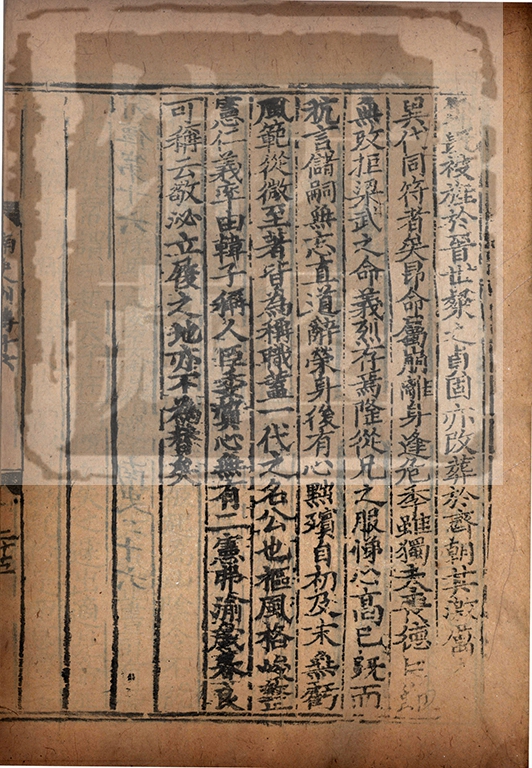 被旌於晉世粲之貞固亦改葬於齊朝其激厲
異代同符者矣昂命屬崩離身逢危季雖獨夫喪德臣節
無改拒梁武之命義烈存焉隆從兄之服悌心高已既而
抗言儲嗣無忘直道辭榮身後有心黜殯自初及末無虧
風範從微至著皆為稱職蓋一代之名公也樞風格峻整
憲仁義率由韓子稱人臣委質心無有二憲弗渝歲暮良
可稱云敬泌立履之地亦不為替矣
列傳第十六 南史二十六
二十五